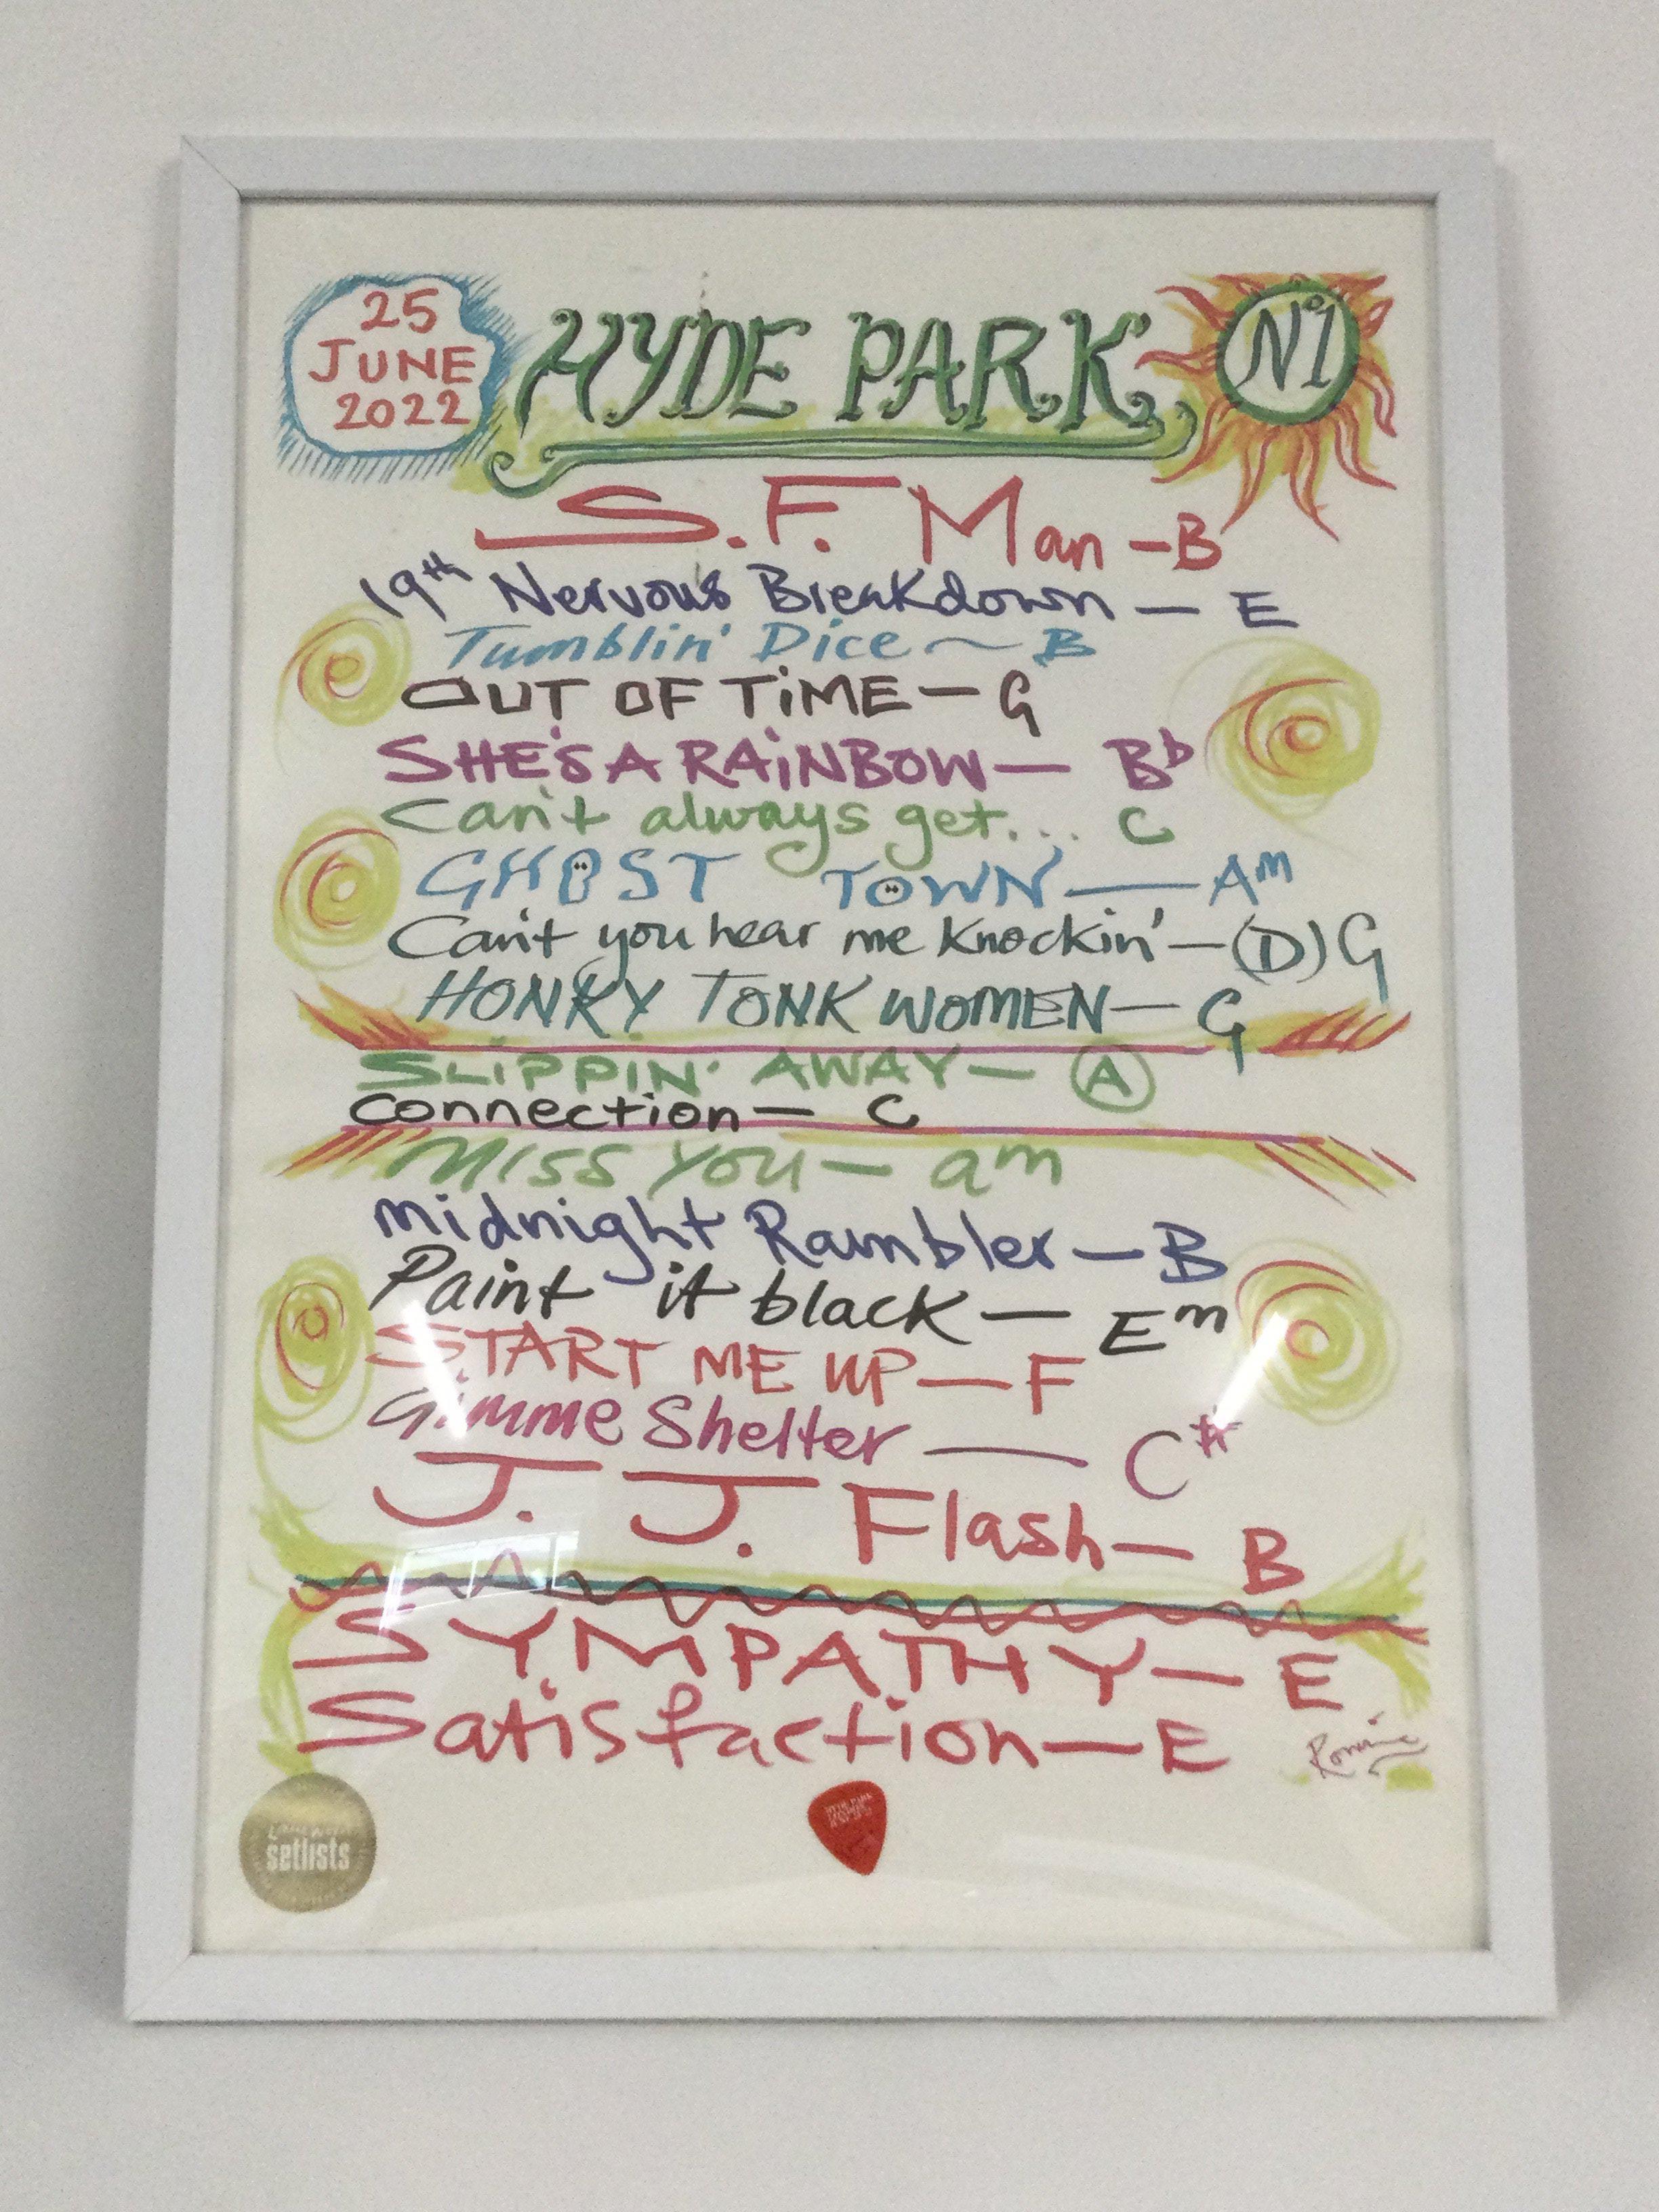 25
JUNE
2022
HYDE PARK
No1
S.F. Man - B
19th Nervous Breakdown — E
Tumblin' Dice ~ B
OUT OF TiME — G
SHE'S A RAiNBOW — Bb
Can't always get... C
GHOST TOWN — Am
Can't you hear me Knockin' — (D) G
HONKY TONK WOMEN — G
SLiPPIN' AWAY — A
Connection — C
Miss You — am
Midnight Rambler — B
Paint it black — Em
START ME UP — F
Gimme Shelter — C#
J. J. Flash — B
SYMPATHY — E
Satisfaction — E
Ronnie
setlists